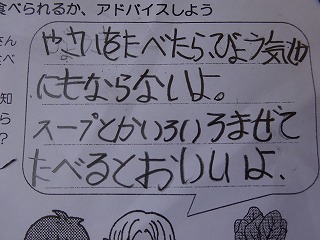 食べられるか、アドバイスしよう
さん
食べ
知
ら
?
やさいをたべたら、びょう気
にもならないよ。
スープとかいろいろまぜて
たべるとおいしいよ。